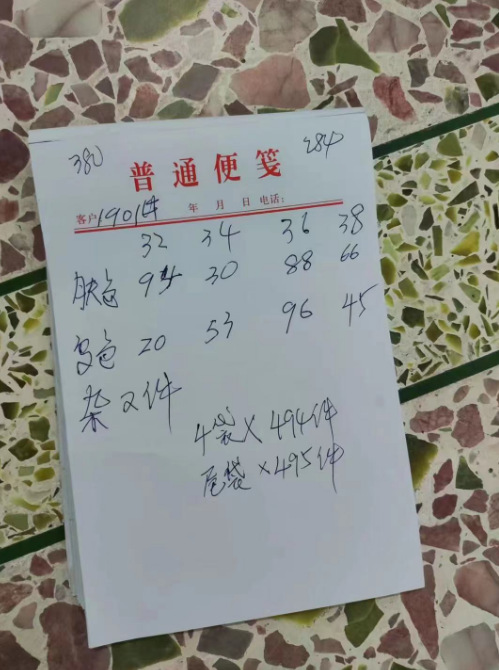 380 284
普通便笺
客户1901件 年 月 日 电话:
32 34 36 38
肤色 94 30 88 66
20 53 96 45
杂 2件
4袋×494件
尾袋×495件